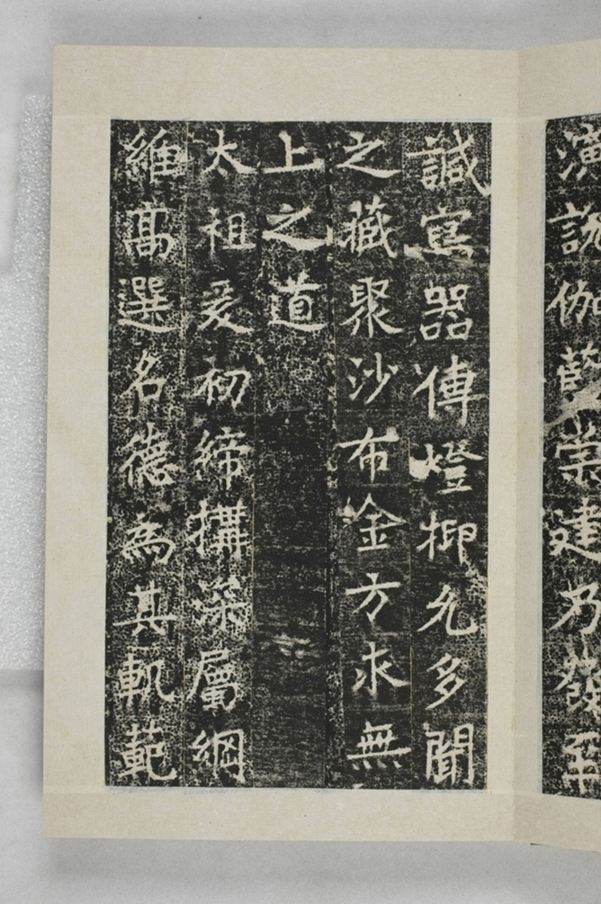 演說伽藍崇建乃發至
誠寫器傳燈抑允多聞
之藏聚沙布金方求無
上之道
太祖爰初締搆深屬綱
維高選名德為其軌範